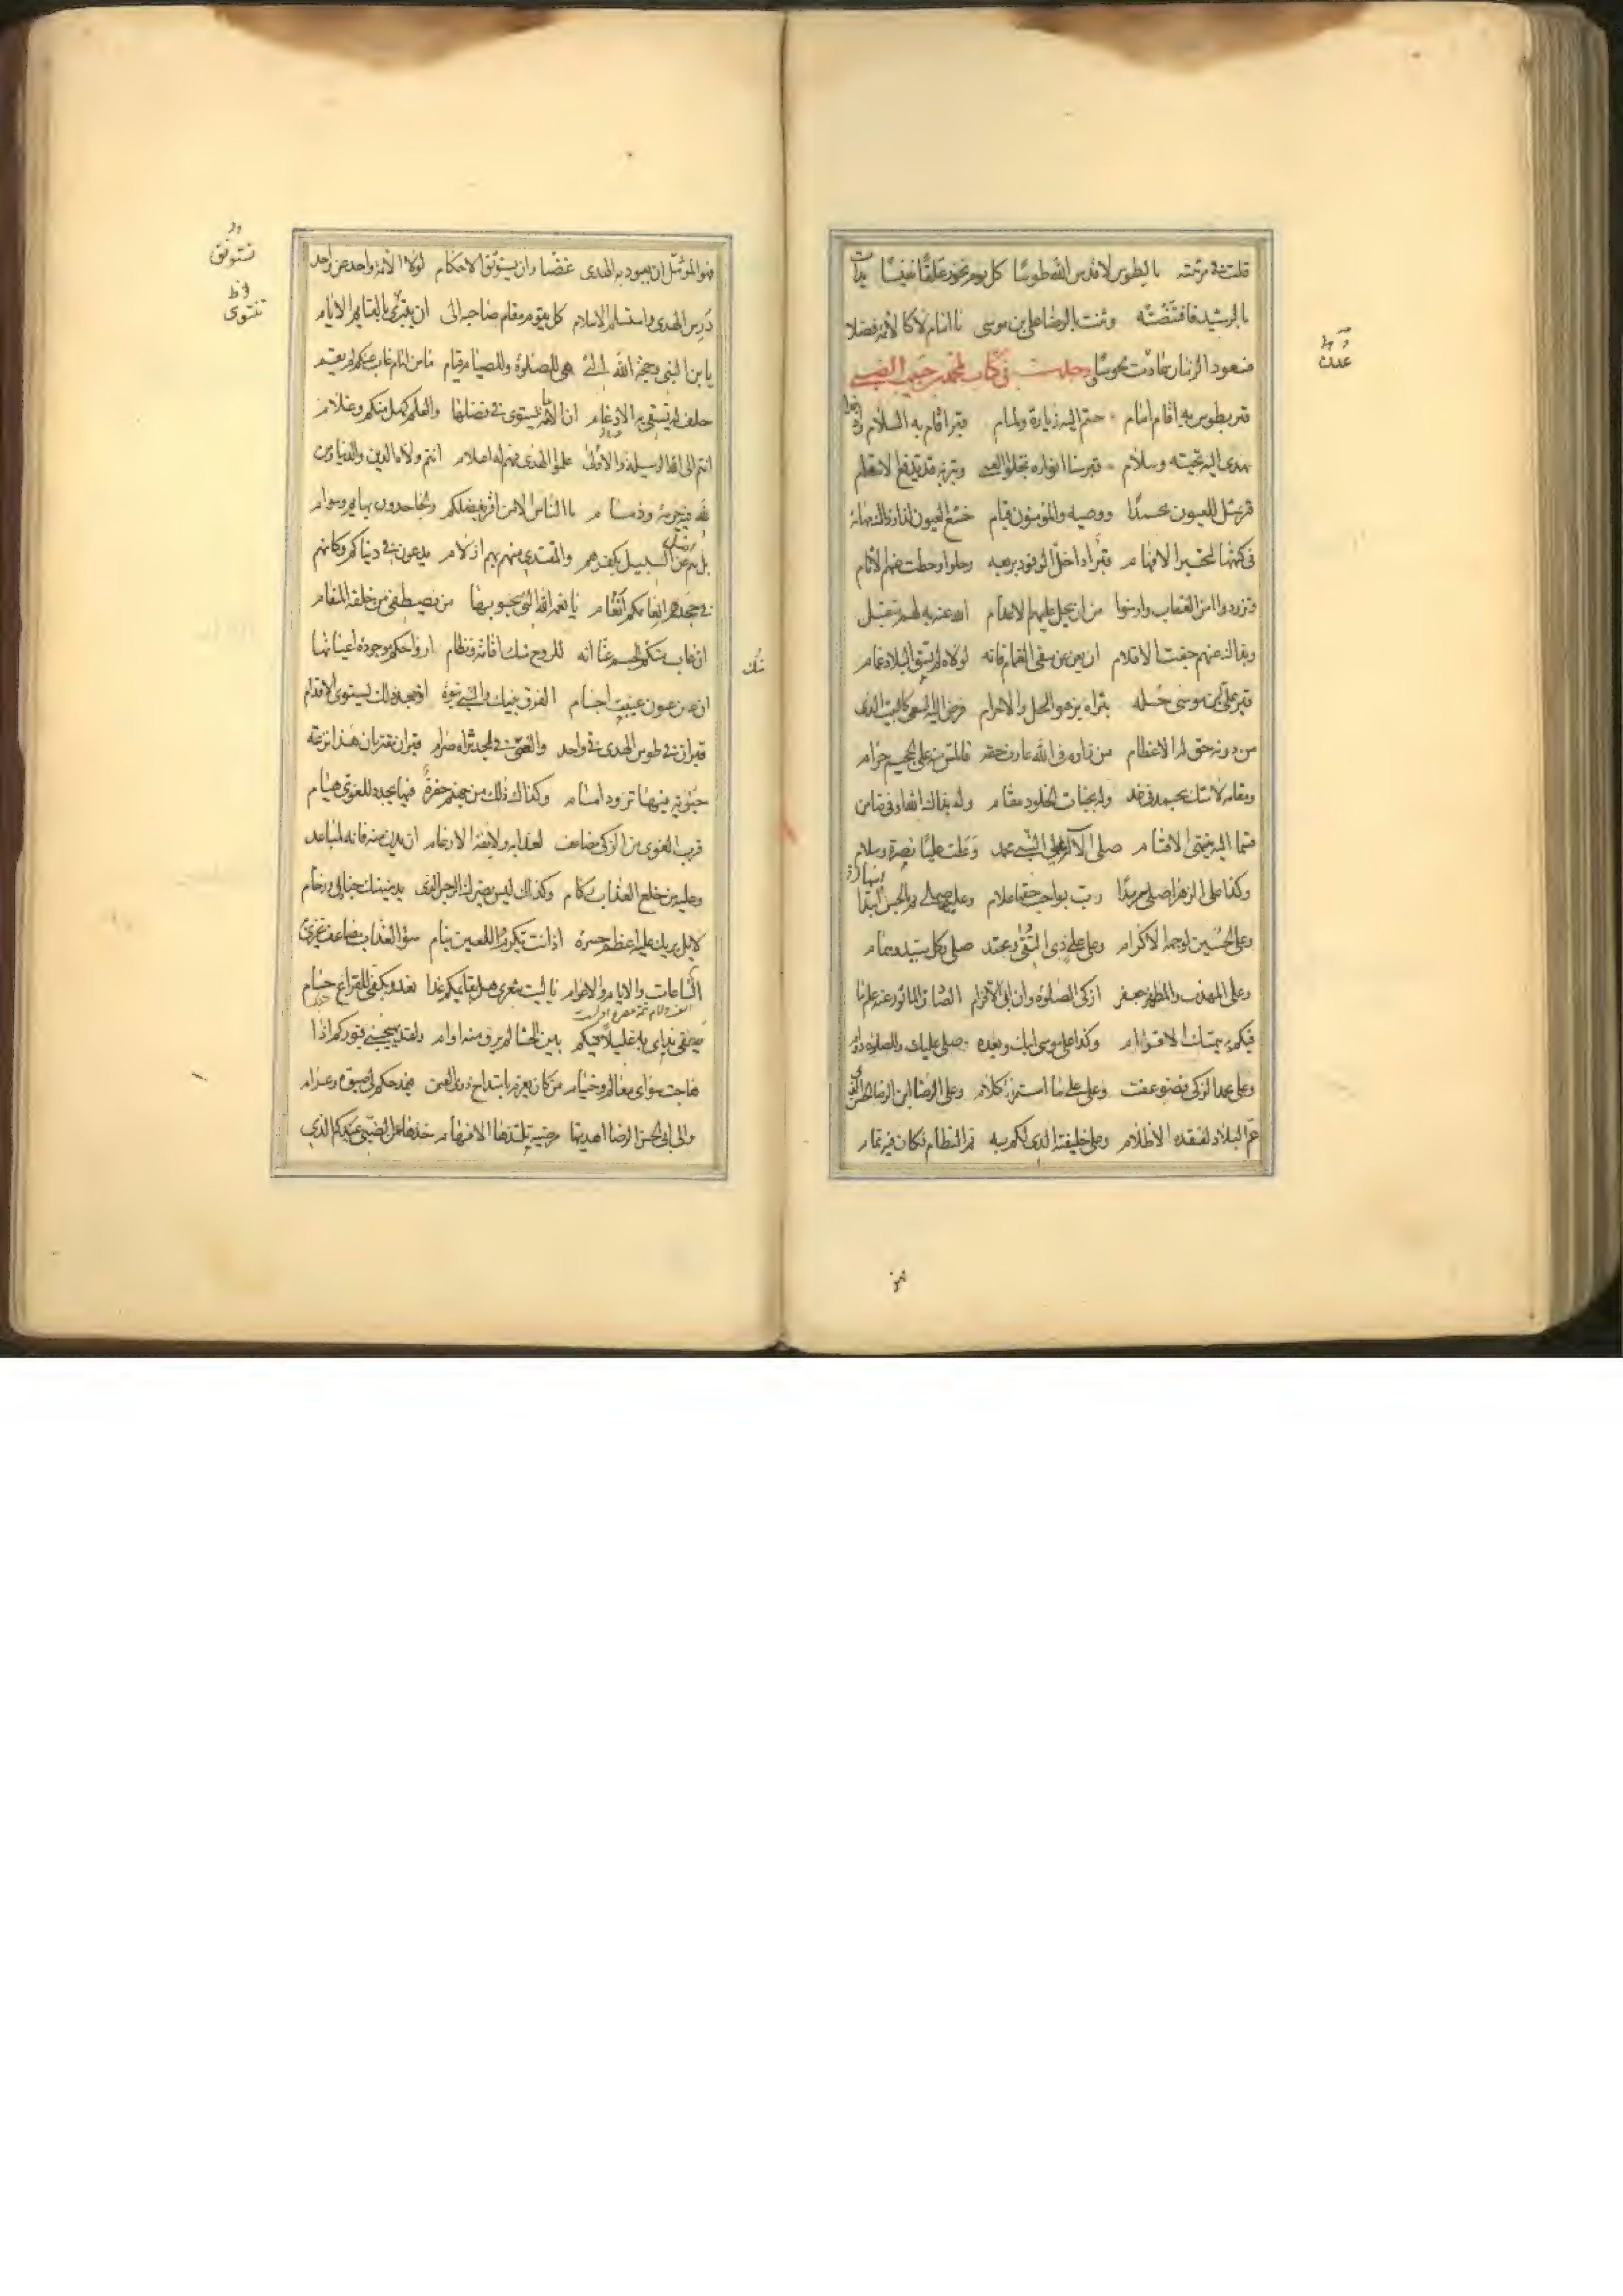 قلت فى مرثيته يا لطوس لا قدس الله طوسا كل يوم تحوز علقا نفيسا بدات
بالرشيد فاقتنصته وثنت بالرضا على بن موسى بامام لا كالائمة فضلا
فسعود الزمان عادت نحوسا وجدت فى كتاب لمحمد بن حبيب الضبى
قبر بطوس به اقام امام حتم اليه زيارة ولمام قبر اقام به السلام واذ غدا
تهدى اليه تحية وسلام قبر سنا انواره تجلو العمى وبتربه قد تدفع الاسقام
قبر يمثل للعيون محمدا ووصيه والمؤمنون قيام خشع العيون لذا وذاك مهابة
فى كنهها لتحير الافهام قبر اذا حل الوفود بربعه رحلوا وحطت عنهم الاثام
وتزودوا امن العقاب واومنوا من ان يحل عليهم الاعدام الله عنه به لهم متقبل
وبذاك عنهم جفت الاقلام ان يغن عن سقى الغمام فانه لولاه لم تسق البلاد غمام
قبر على بن موسى حله بثراه يزهو الحل والاحرام فرض اليه السعى كالبيت الذى
من دونه حق له الاعظام من زاره فى الله عارف حقه فالمس منه على الجحيم حرام
ومقامه لا شك يحمد فى غد وله بجنات الخلود مقام وله بذاك الله اوفى ضامن
قسما اليه تنتهى الاقسام صلى الاله على النبى محمد وعلت عليا نصرة وسلام
وكذا على الزهراء صلى سرمدا رب بواجب حقها علام وعليه صلى ثم بالحسن ابتدا
وعلى الحسين لوجهه الاكرام وعلى على ذى التقى ومحمد صلى وكل سيد وهمام
وعلى المهذب والمطهر جعفر ازكى الصلوة وان ابى الاقزام الصادق الماثور عنه علم ما
فيكم به يتمسك الاقوام وكذا على موسى ابيك وبعده صلى عليك وللصلوة دوام
وعلى محمد الزكى فضوعفت وعلى على ما استمر كلام وعلى الرضا ابن الرضا الحسن الذى
عم البلاد لفقده الاظلام وعلى خليفته الذى لكم به تم النظام فكان فيه تمام
عدن
فهو المؤمل ان يعود به الهدى غضا وان يستوثق الاحكام لولا الائمة واحد عن واحد
درس الهدى واستسلم الاسلام كل يقوم مقام صاحبه الى ان ينبرى بالقائم الايام
يا بن النبى وحجة الله التى هى للصلوة وللصيام قيام ما من امام غاب منكم لم يقم
خلف له تشفى به الاوغام ان الائمة تستوى فى فضلها والعلم كهل منكم وغلام
انتم الى الله الوسيلة والاولى علموا الهدى فهم له اعلام انتم ولاة الدين والدنيا ومن
لله فيه حرمة وذمام ما الناس الا من اقر بفضلكم والجاحدون بهايم وسوام
بل هم اضل عن السبيل بكفرهم والمقتدى منهم بهم ازلام يدعون فى دنياكم وكانهم
فى جحدهم انعامكم انعام يا نعمة الله التى يحبو بها من يصطفى من خلقه المنعام
ان غاب منك الجسم عنا انه للروح منك اقامة ونظام ارواحكم موجودة اعيانها
ان عن عيون غيبت اجسام الفرق بينك والنبى نبوة اذ بعد ذلك تستوى الاقدام
قبران فى طوس الهدى فى واحد والغى فى لحد ثراه ضرام قبران مقترنان هذا ترعة
جنوية فيها تزور امام وكذاك ذلك من جهنم حفرة فيها يجدد للغوى هيام
قرب الغوى من الزكى مضاعف لعذابه ولانفه الارغام ان يدن منه فانه لمباعد
وعليه من خلع العذاب ركام وكذاك ليس يضرك الرجس الذى يدنيه منك جنادل ورخام
لا بل يريك عليه اعظم حسرة اذ انت تكرم واللعين يسام سوء العذاب مضاعف تجرى به
الساعات والايام والاعوام يا ليت شعرى هل بقائمكم غدا يغدو بكفى للقراع حسام
تطفى يداى به غليلا فيكم بين الحشا لم يرو منه اوام ولقد يهيجنى قبوركم اذا
هاجت سواى معالم وخيام من كان يغرم بامتداح ذوى الغنى فبمدحكم لى صبوة وغرام
والى ابى الحسن الرضا اهديتها مرضية تلتذها الافهام خذها عن الضبى عبدكم الذى